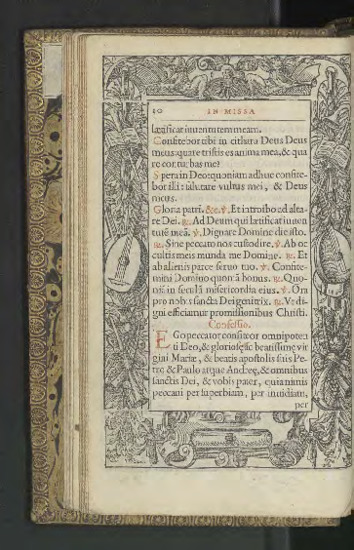 10 IN MISSA
lætificat iuuentutem meam.
Confitebor tibi in cithara Deus Deus
meus: quare tristis es anima mea, & qua
re conturbas me?
Spera in Deo: quoniam adhuc confite-
bor illi: salutare vultus mei, & Deus
meus.
Gloria patri. &c. ℣. Et introibo ad alta-
re Dei. ℟. Ad Deum qui lætificat iuuen
tutē meā. ℣. Dignare Domine die isto.
℟. Sine peccato nos custodire. ℣. Ab oc
cultis meis munda me Domine. ℟. Et
ab alienis parce seruo tuo. ℣. Confite-
mini Domino quoniā bonus. ℟. Quo-
niā in seculū misericordia eius. ℣. Ora
pro nobis sancta Dei genitrix. ℟. Vt di-
gni efficiamur promissionibus Christi.
Confessio.
EGo peccator confiteor omnipotē
ti Deo, & gloriosissime beatissime vir
gini Mariæ, & beatis apostolis suis Pe-
tro & Paulo atque Andreę, & omnibus
sanctis Dei, & vobis pater, quia nimis
peccaui per superbiam, per inuidiam,
per